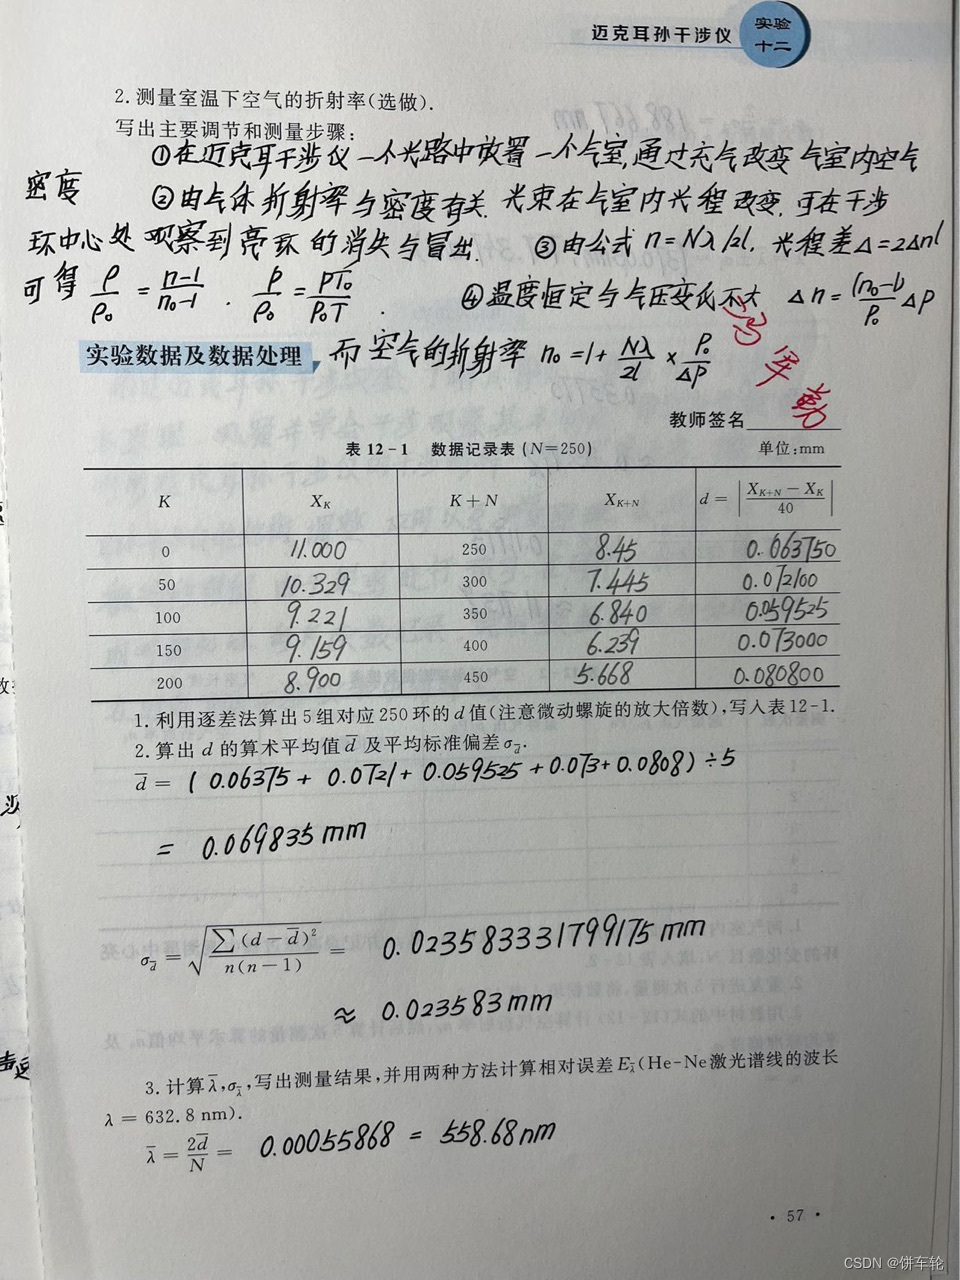 迈克耳孙干涉仪
实验
十二
2.测量室温下空气的折射率(选做).
写出主要调节和测量步骤:
①在迈克耳干涉仪一个光路中放置一个气室,通过充气改变气室内空气
密度 ②由气体折射率与密度有关.光束在气室内光程改变.可在干涉
环中心处观察到亮环的消失与冒出. ③由公式 n=Nλ/2l. 光程差Δ=2Δnl
可得 ρ/ρ₀ = (n-1)/(n₀-1) . ρ/ρ₀ = PT₀/P₀T . ④温度恒定与气压变化不大 Δn = (n₀-1)/P₀ Δp
实验数据及数据处理 而空气的折射率 n₀ = 1 + Nλ/2l × P₀/ΔP
教师签名
表 12-1 数据记录表 (N=250) 单位:mm
K X_K K+N X_{K+N} d = |(X_{K+N} − X_K)/40|
0 11.000 250 8.45 0.063750
50 10.329 300 7.445 0.072100
100 9.221 350 6.840 0.059525
150 9.159 400 6.239 0.073000
200 8.900 450 5.668 0.080800
1.利用逐差法算出5组对应250环的d值(注意微动螺旋的放大倍数),写入表12-1.
2.算出 d 的算术平均值 d̄ 及平均标准偏差 σ_d̄.
d̄ = (0.06375 + 0.0721 + 0.059525 + 0.073 + 0.0808) ÷ 5
= 0.069835 mm
σ_d̄ = √(∑(d−d̄)²/n(n−1)) = 0.023583331799175 mm
≈ 0.023583 mm
3.计算 λ̄,σ_λ̄,写出测量结果,并用两种方法计算相对误差 E_λ̄(He-Ne激光谱线的波长
λ = 632.8 nm).
λ̄ = 2d̄/N = 0.00055868 = 558.68 nm
· 57 ·
CSDN @饼车轮